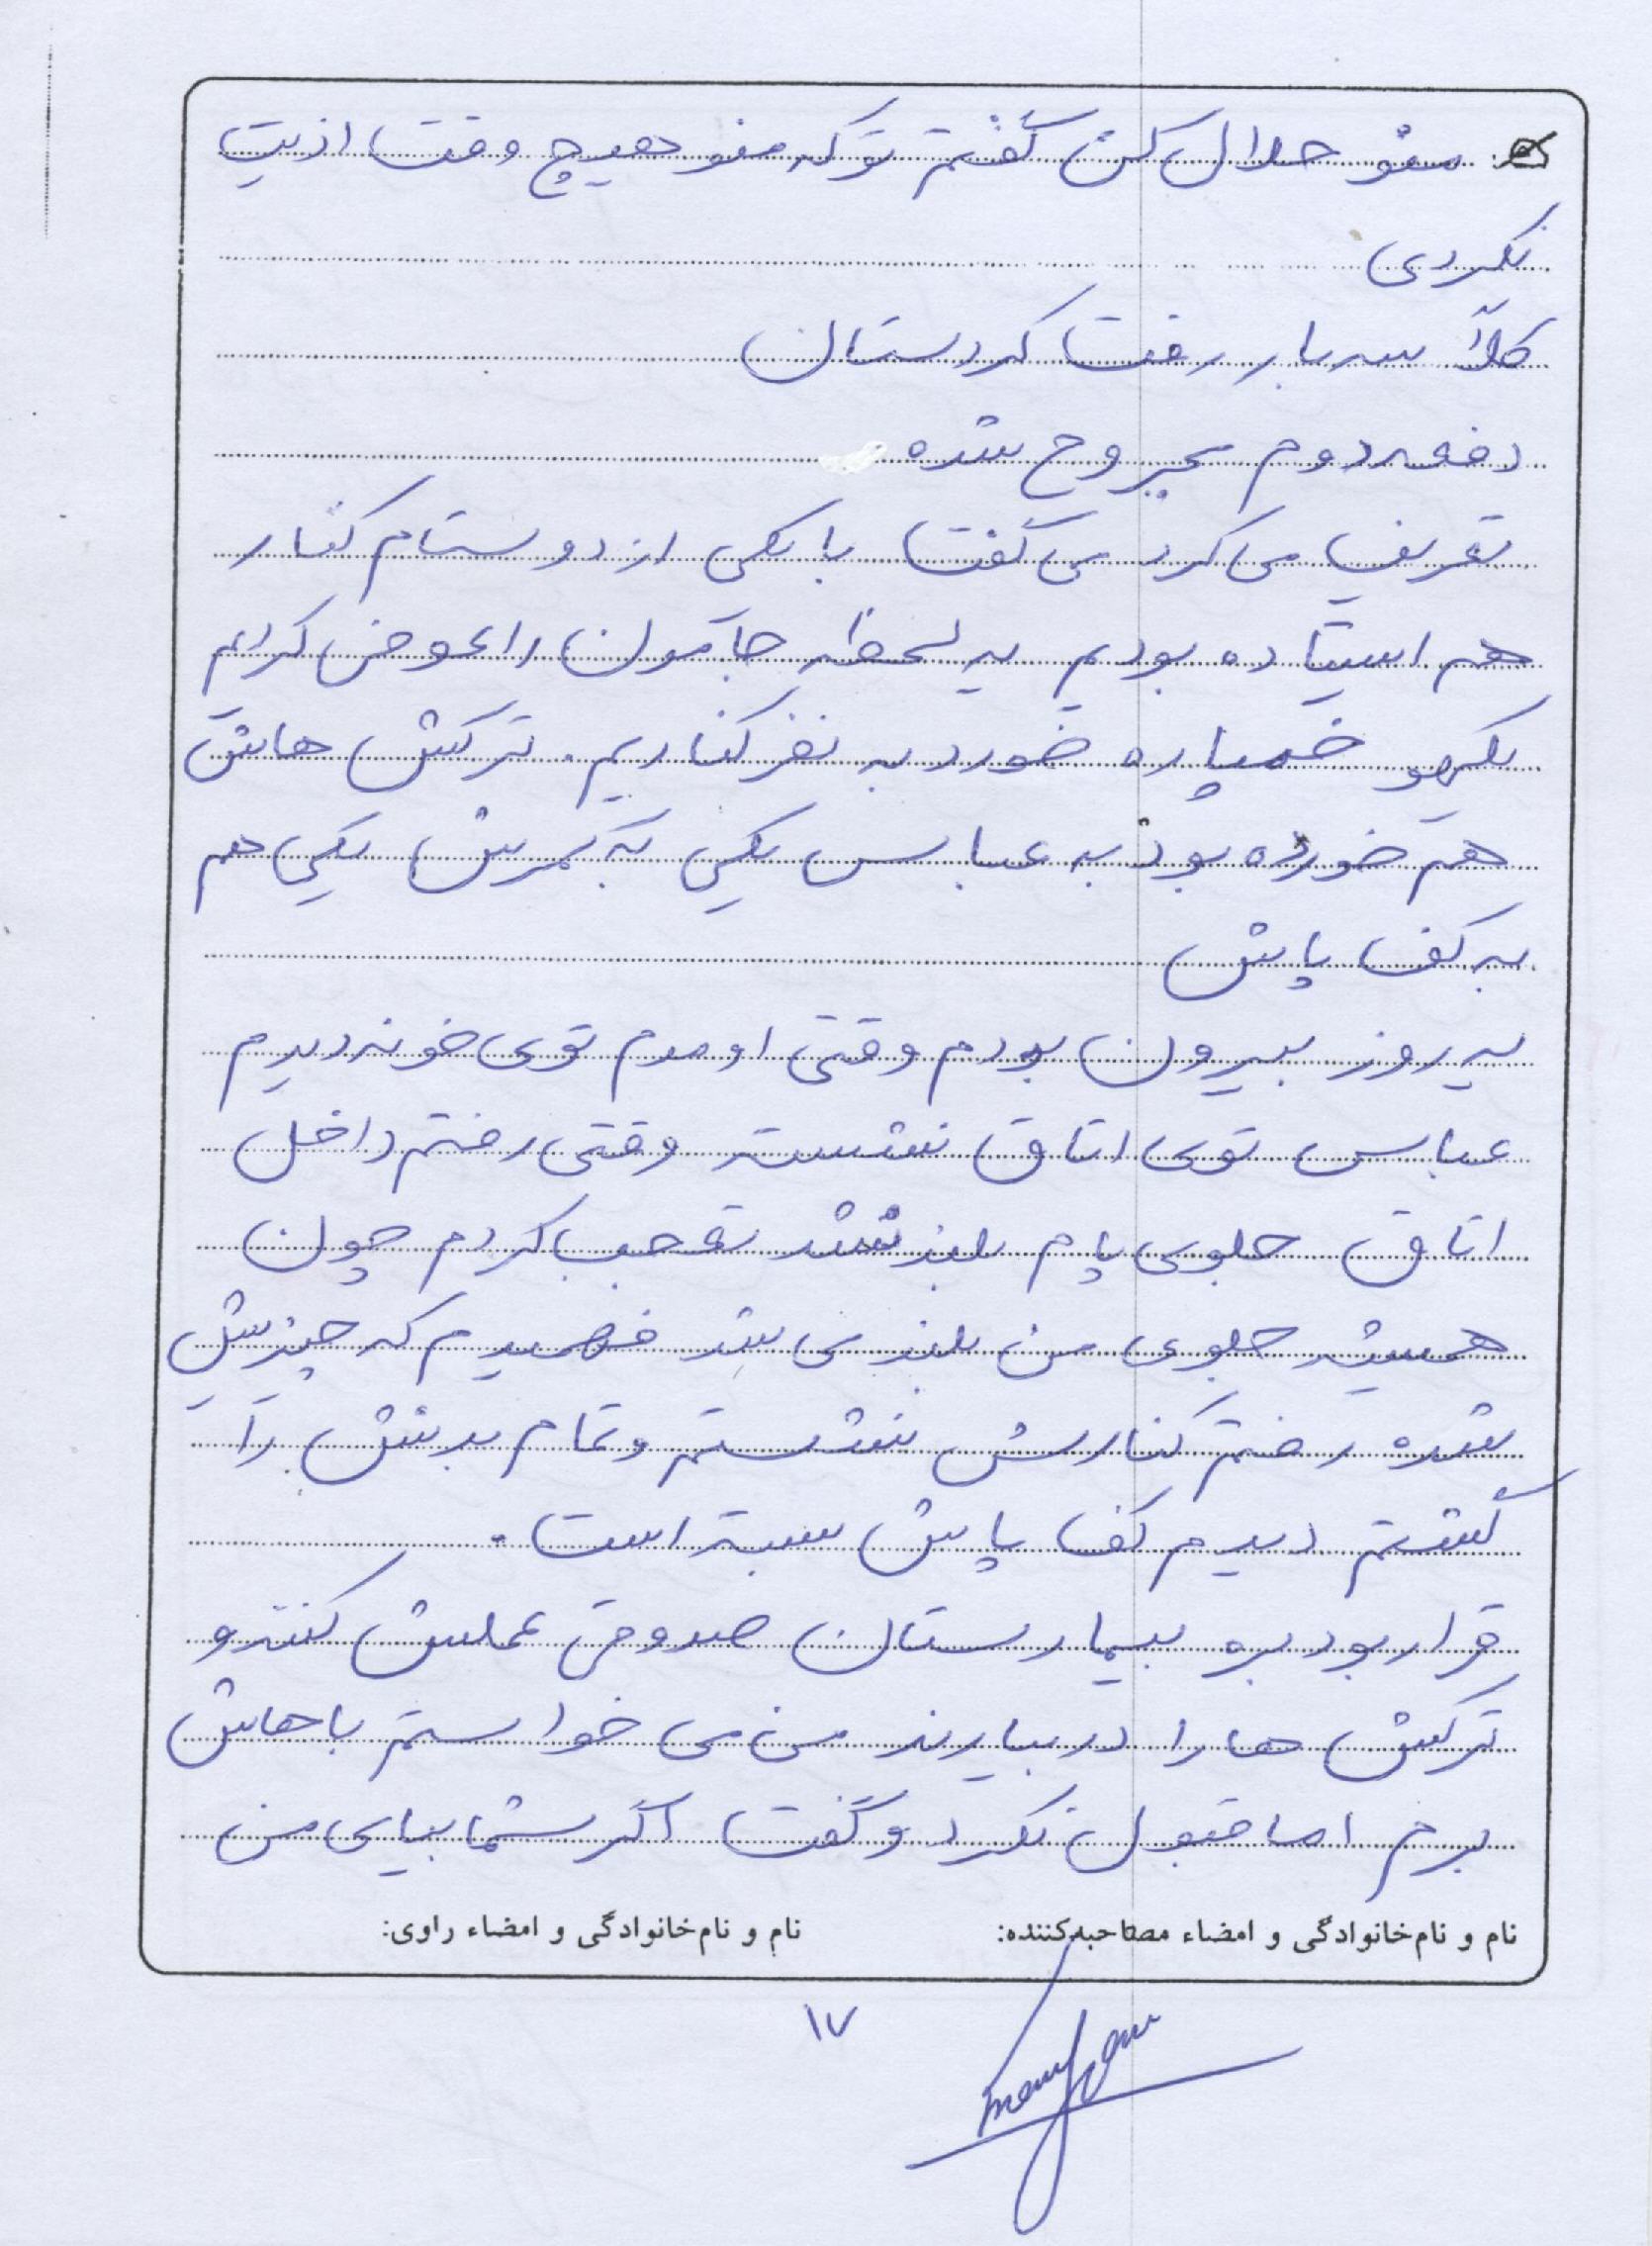 منو حلال کن گفتم تو که منو هیچ وقت اذیت
نکردی
کلاً سه بار رفت کردستان
دفعه دوم مجروح شده
تعریف می کرد می گفت با یکی از دوستام کنار
هم ایستاده بودیم یه لحظه جامون را عوض کردیم
یکهو خمپاره خورد به نفر کناریم. ترکش هاش
هم خورده بود به عباس یکی به کمرش یکی هم
به کف پاش
یه روز بیرون بودم وقتی اومدم توی خونه دیدم
عباس توی اتاق نشسته وقتی رفتم داخل
اتاق جلوی پام بلند نشد تعجب کردم چون
همیشه جلوی من بلند می شد فهمیدم که چیزیش
شده رفتم کنارش نشستم و تمام بدنش را
گشتم دیدم کف پاش بسته است.
قرار بود بره بیمارستان صدوقی عملش کنند و
ترکش ها را در بیارند من می خواستم باهاش
برم اما قبول نکرد و گفت اگر شما بیای من
نام و نام‌خانوادگی و امضاء مصاحبه‌کننده: نام و نام‌خانوادگی و امضاء راوی:
۱۷